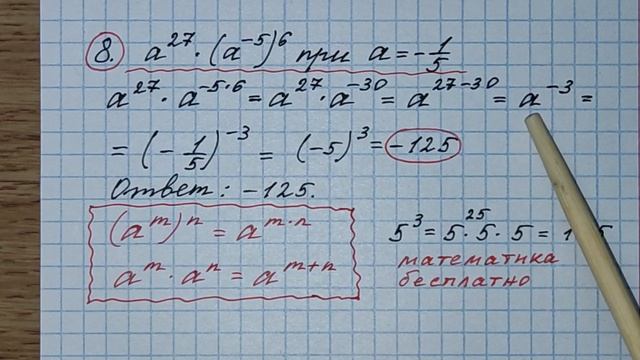 8. a²⁷ · (a⁻⁵)⁶ при a = -1/5
a²⁷ · a⁻⁵·⁶ = a²⁷ · a⁻³⁰ = a²⁷⁻³⁰ = a⁻³ =
= (-1/5)⁻³ = (-5)³ = -125
Ответ: -125.
(aᵐ)ⁿ = aᵐ·ⁿ
aᵐ · aⁿ = aᵐ⁺ⁿ
25
5³ = 5 · 5 · 5 = 1 5
математика
бесплатно